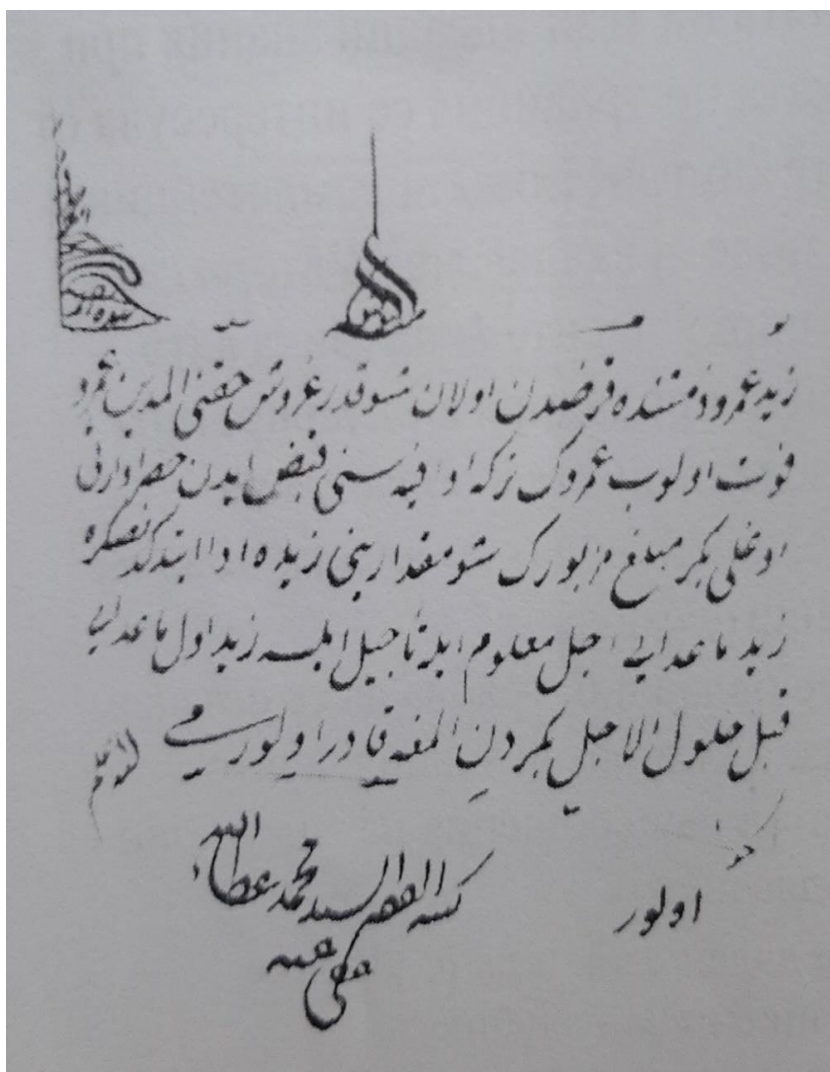 زيد عمرو ذمتنده قرضدن اولان شو قدر غروش حقنی المدین عمرو
فوت اولوب عمروك تركه وافيه سنی قبض ایدن حصرا وارثی
اوغلی بكر مبلغ مزبورك شو مقدارینی زیده ادا ایتدكدنصكره
زید ماعدایی اجل معلوم ایله تأجیل ایلسه زید اول ماعدایی
قبل حلول الاجل بكردن المغه قادر اولورمی
الجواب
اولور
كتبه الفقیر السید محمد عطاءالله
عفی عنه